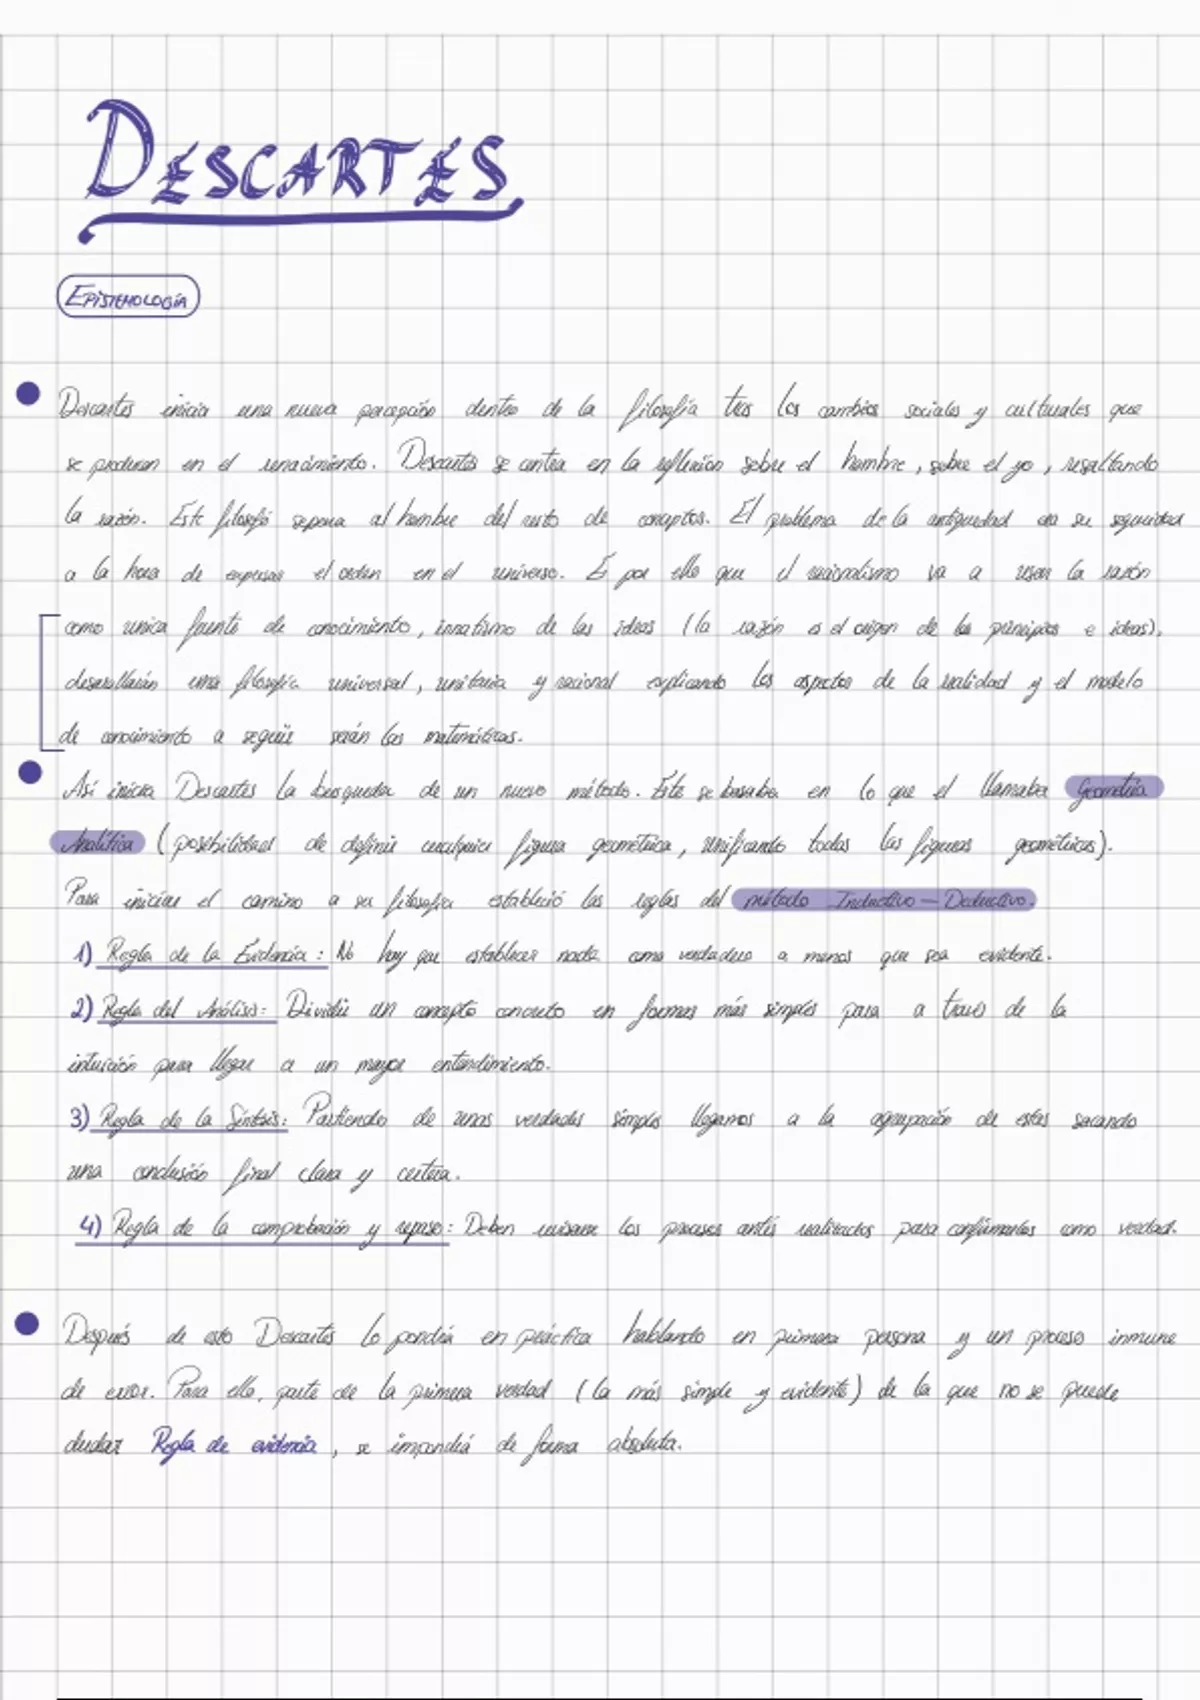 DESCARTES
EPISTEMOLOGÍA
Descartes inicia una nueva percepción dentro de la filosofía tras los cambios sociales y culturales que
se producen en el renacimiento. Descartes se centra en la reflexión sobre el hombre, sobre el yo, resaltando
la razón. Este filosofo separa al hombre del resto de conceptos. El problema de la antiguedad era su seguridad
a la hora de expresar el orden en el universo. Es por ello que el racionalismo va a usar la razón
como unica fuente de conocimiento, innatismo de las ideas (la razón es el origen de los principios e ideas),
desarrollarán una filosofía universal, unitaria y racional explicando los aspectos de la realidad y el modelo
de conocimiento a seguir serán las matemáticas.
Así inicia Descartes la busqueda de un nuevo método. Este se basaba en lo que el llamaba Geometría
Analítica (posibilidad de definir cualquier figura geométrica, unificando todas las figuras geométricas).
Para iniciar el camino a su filosofía estableció las reglas del método Inductivo - Deductivo.
1) Regla de la Evidencia: No hay que establecer nada como verdadero a menos que sea evidente.
2) Regla del Análisis: Dividir un concepto concreto en formas más simples para a través de la
intuición para llegar a un mayor entendimiento.
3) Regla de la Síntesis: Partiendo de unas verdades simples llegamos a la agrupación de estas sacando
una conclusión final clara y certera.
4) Regla de la comprobación y repaso: Deben revisarse los procesos antes realizados para confirmarlos como verdad.
Después de esto Descartes lo pondrá en práctica hablando en primera persona y un proceso inmune
de error. Para ello, parte de la primera verdad (la más simple y evidente) de la que no se puede
dudar Regla de evidencia, se impondrá de forma absoluta.